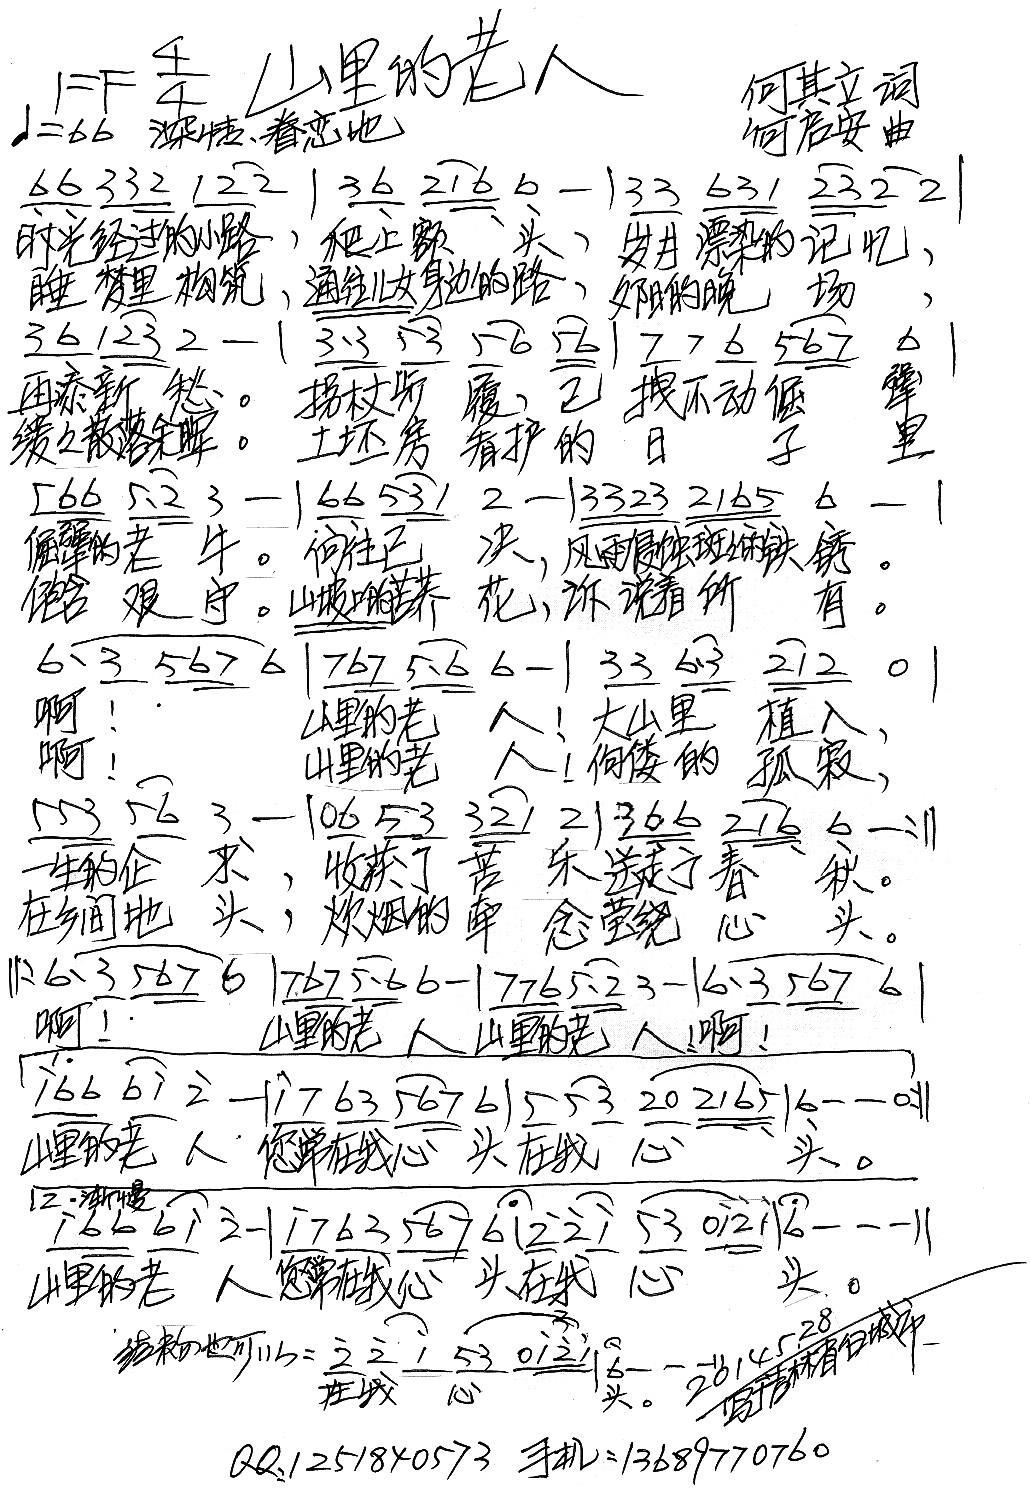 1=F 4/4 山里的老人
何其立 词
♩=66 深情、眷恋地
何启安 曲
66 332 122 | 36 216 6 - | 33 631 232 2 |
时光经过的小路，爬上额头，岁月漂染的记忆，
睡梦里构筑，通往儿女身边的路，夕阳的晚场，
36 123 2 - | 3·3 53 56 56 | 7 7 6 567 6 |
再添新愁。拐杖步履，已拽不动倔犟
缓缓散落余晖。土坯房看护的日子里
566 5·2 3 - | 66 531 2 - | 3323 2165 6 - |
倔犟的老牛。向往已决，风雨侵蚀斑斓铁锈。
饱含艰守。山坡的苦荞花，诉说着所有。
6·3 567 6 | 767 5·6 6 - | 33 6·3 212 0 |
啊！山里的老人！大山里植入，
啊！山里的老人！佝偻的孤寂，
553 56 3 - | 06 53 321 2 | 366 216 6 - :||
一生的企求，收获了苦乐送走了春秋。
在乡间地头，炊烟的牵念萦绕心头。
||: 6·3 567 6 | 767 5·6 6 - | 776 5·2 3 - | 6·3 567 6 |
啊！山里的老人山里的老人！啊！
1.
i66 6i 2 - | i763 567 6 | 5 53 20 2165 | 6 - - 0 :||
山里的老人您常在我心头在我心头。
2.渐慢
i66 6i 2 - | i763 567 6i | 22i 53 0i2i | 6 - - - ||
山里的老人您常在我心头在我心头。
结束句也可以= 2 2 i 53 0i2i | 6 - - -
在我心头。
2014 5 28
写于吉林省白城市
QQ:1251840573 手机=13689770760